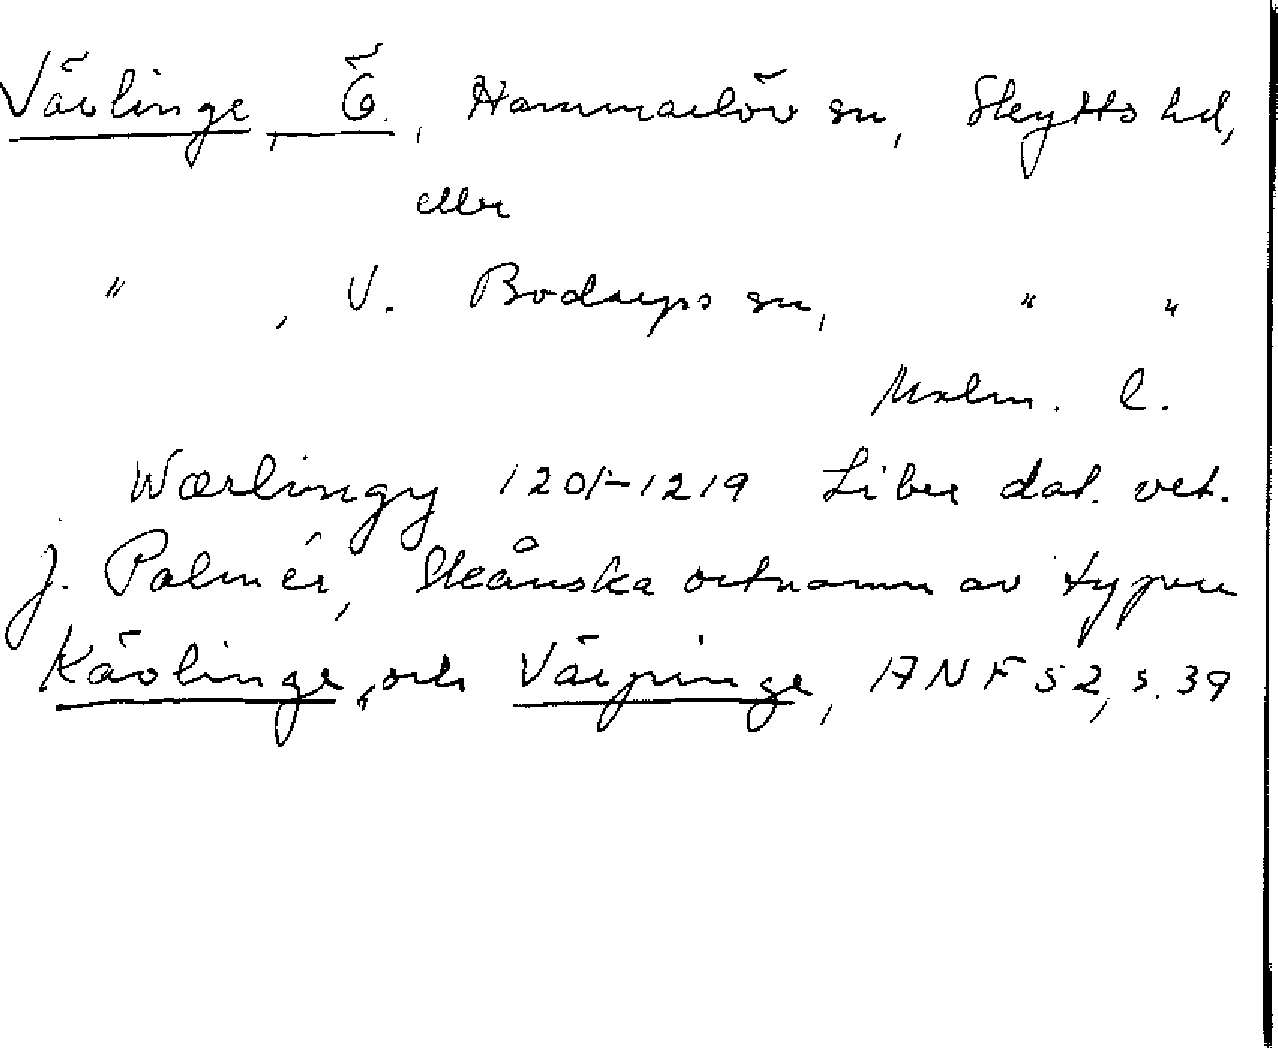 Vävlinge, Ö., Hammarlöv sn, Skytts hd,
eller
" , V. Bodarps sn, " "
Malm. l.
Wærlingy 1201-1219 Liber dat. vet.
J. Palmér, Skånska ortnamn av typen
Kävlinge och Värpinge, ANF 52, s. 39